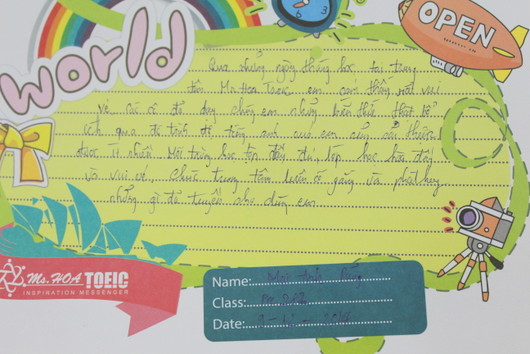 world
OPEN
Qua những ngày tháng học tại trung
tâm Ms Hoa Toeic em cảm thấy rất vui
Vì các cô đã dạy chúng em những kiến thức thật bổ
ích qua đó trình độ tiếng anh của em cũng cải thiện
được ít nhiều. Môi trường học tập đầy đủ, lớp học hòa đồng
và vui vẻ. Chúc trung tâm luôn cố gắng và phát huy
những gì đã truyền cho chúng em.
Ms. HOA TOEIC
INSPIRATION MESSENGER
Name:
Class:
Date: